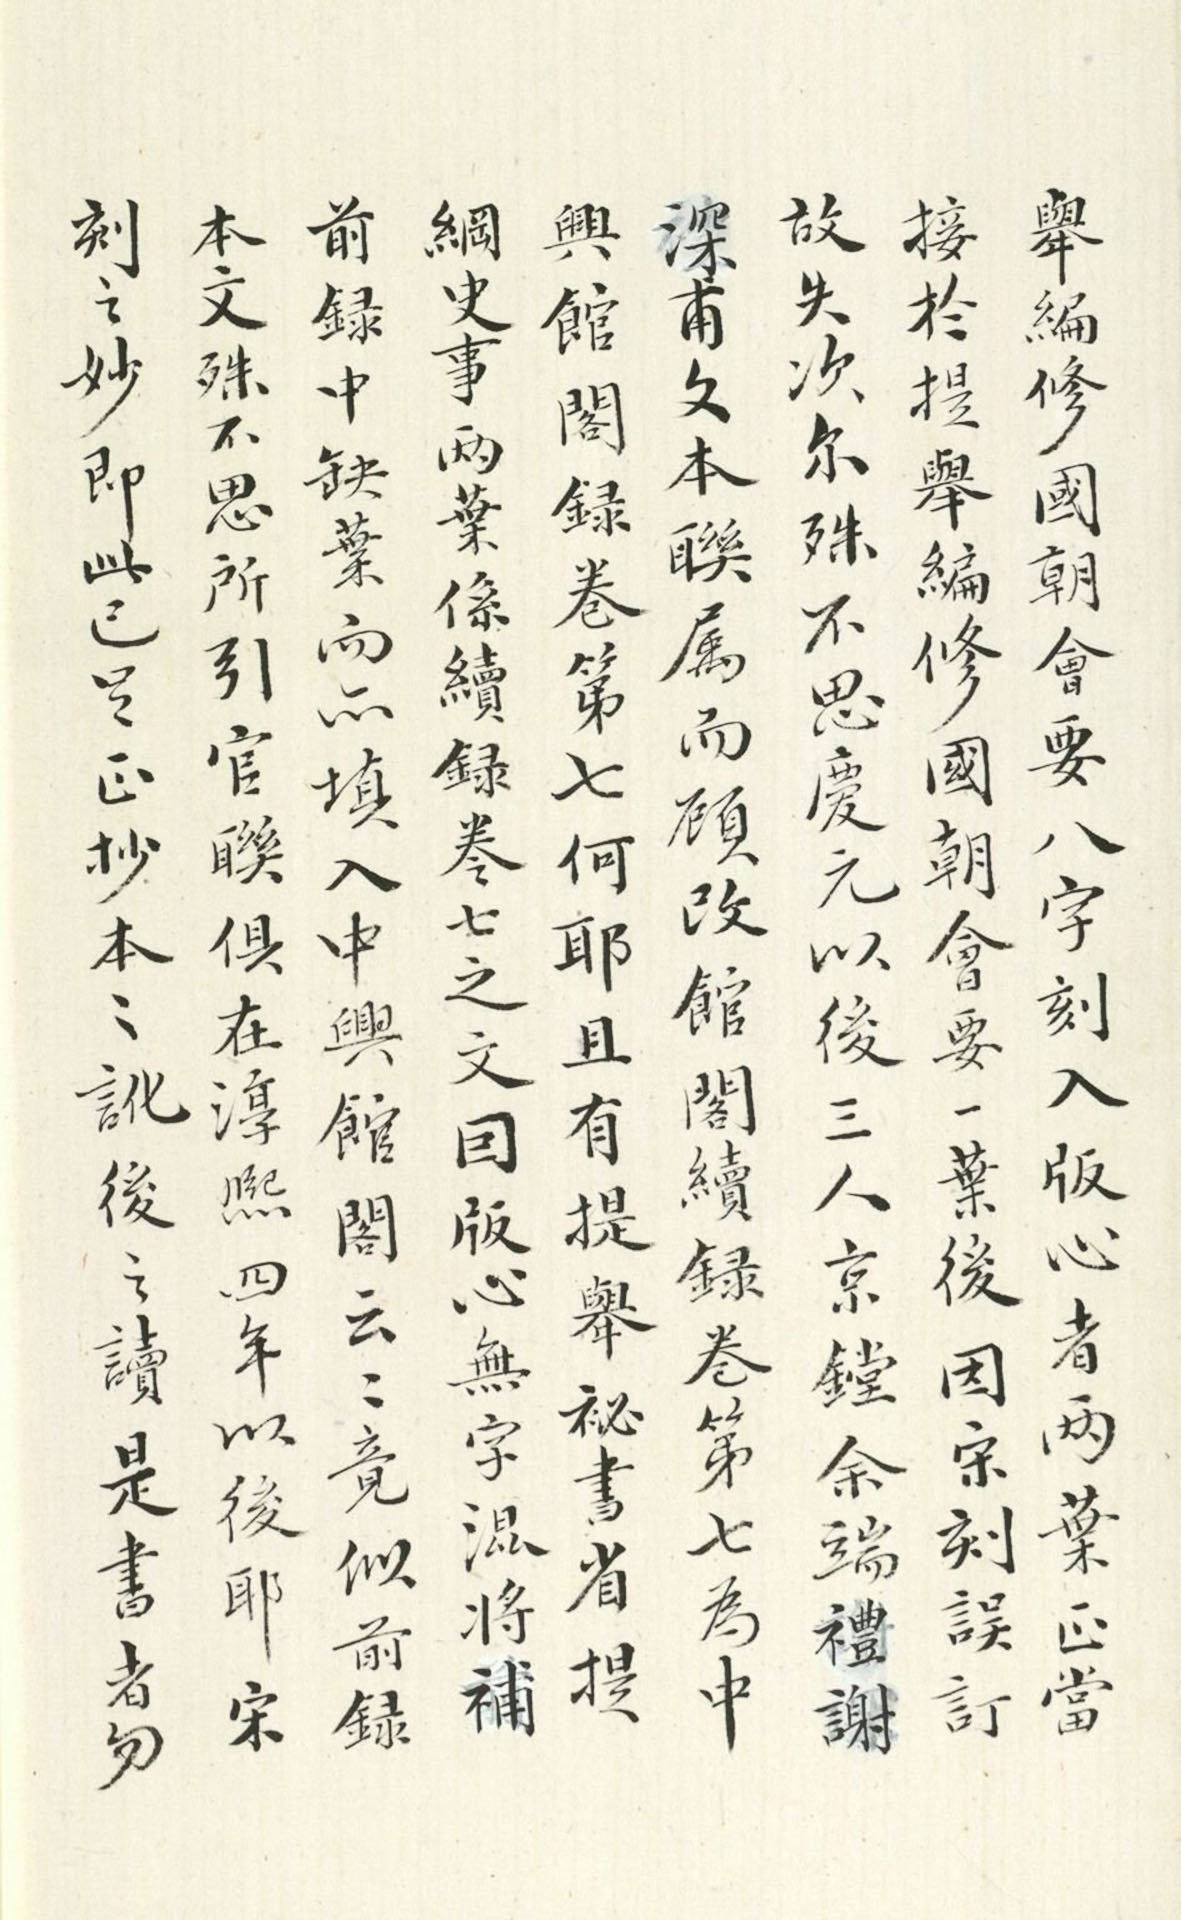 舉編修國朝會要八字刻入版心者兩葉正當
接於提舉編修國朝會要一葉後因宋刻誤訂
故失次尔殊不思慶元以後三人京鏜余端禮謝
深甫文本聯属而顧改館閣續録卷第七為中
興館閣録卷第七何耶且有提舉祕書省提
綱史事兩葉係續録卷七之文因版心無字混將補
前録中缺葉而亦填入中興館閣云〻竟似前録
本文殊不思所引官聯俱在淳熙四年以後耶宋
刻之妙即此已足正抄本〻訛後之讀是書者勿